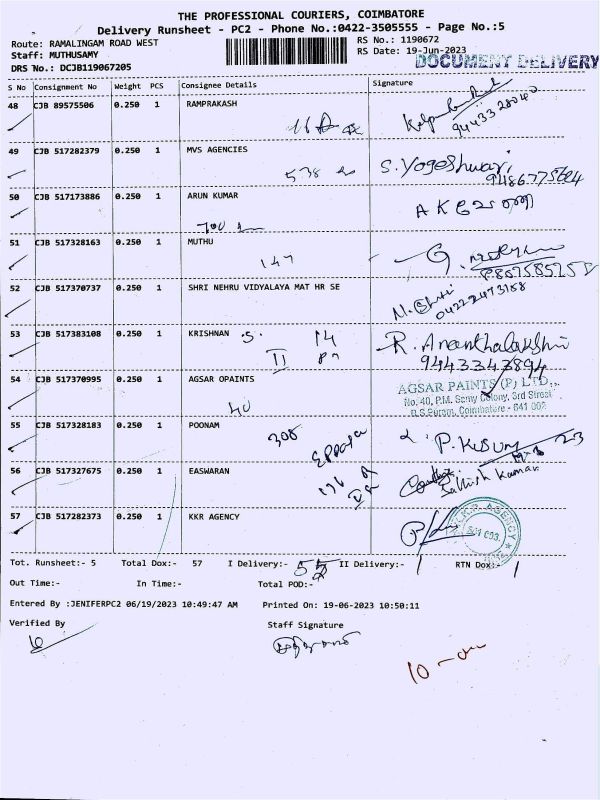 THE PROFESSIONAL COURIERS, COIMBATORE
Delivery Runsheet - PC2 - Phone No.:0422-3505555 - Page No.:5
Route: RAMALINGAM ROAD WEST RS No.: 1190672
Staff: MUTHUSAMY RS Date: 19-Jun-2023
DOCUMENT DELIVERY
DRS No.: DCJB119067205
S No Consignment No Weight PCS Consignee Details Signature
48 CJB 89575506 0.250 1 RAMPRAKASH
9443328040
49 CJB 517282379 0.250 1 MVS AGENCIES
538 S. Yogeshwari
50 CJB 517173886 0.250 1 ARUN KUMAR
700
51 CJB 517328163 0.250 1 MUTHU
147
52 CJB 517370737 0.250 1 SHRI NEHRU VIDYALAYA MAT HR SE
04222473158
53 CJB 517383108 0.250 1 KRISHNAN .S. 14
II R. Ananthalakshmi
9443343894
54 CJB 517370995 0.250 1 AGSAR OPAINTS
40
AGSAR PAINTS (P) LTD.,
No. 40, P.M. Samy Colony, 3rd Street
R.S.Puram, Coimbatore - 641 002
55 CJB 517328183 0.250 1 POONAM
308 P. Kusum
56 CJB 517327675 0.250 1 EASWARAN
Sathish Kumar
57 CJB 517282373 0.250 1 KKR AGENCY
K.K.R. AGENCY
641 003.
Tot. Runsheet:- 5 Total Dox:- 57 I Delivery:- 55 II Delivery:- 1 RTN Dox:- 1
Out Time:- In Time:- Total POD:-
Entered By :JENIFERPC2 06/19/2023 10:49:47 AM Printed On: 19-06-2023 10:50:11
Verified By Staff Signature